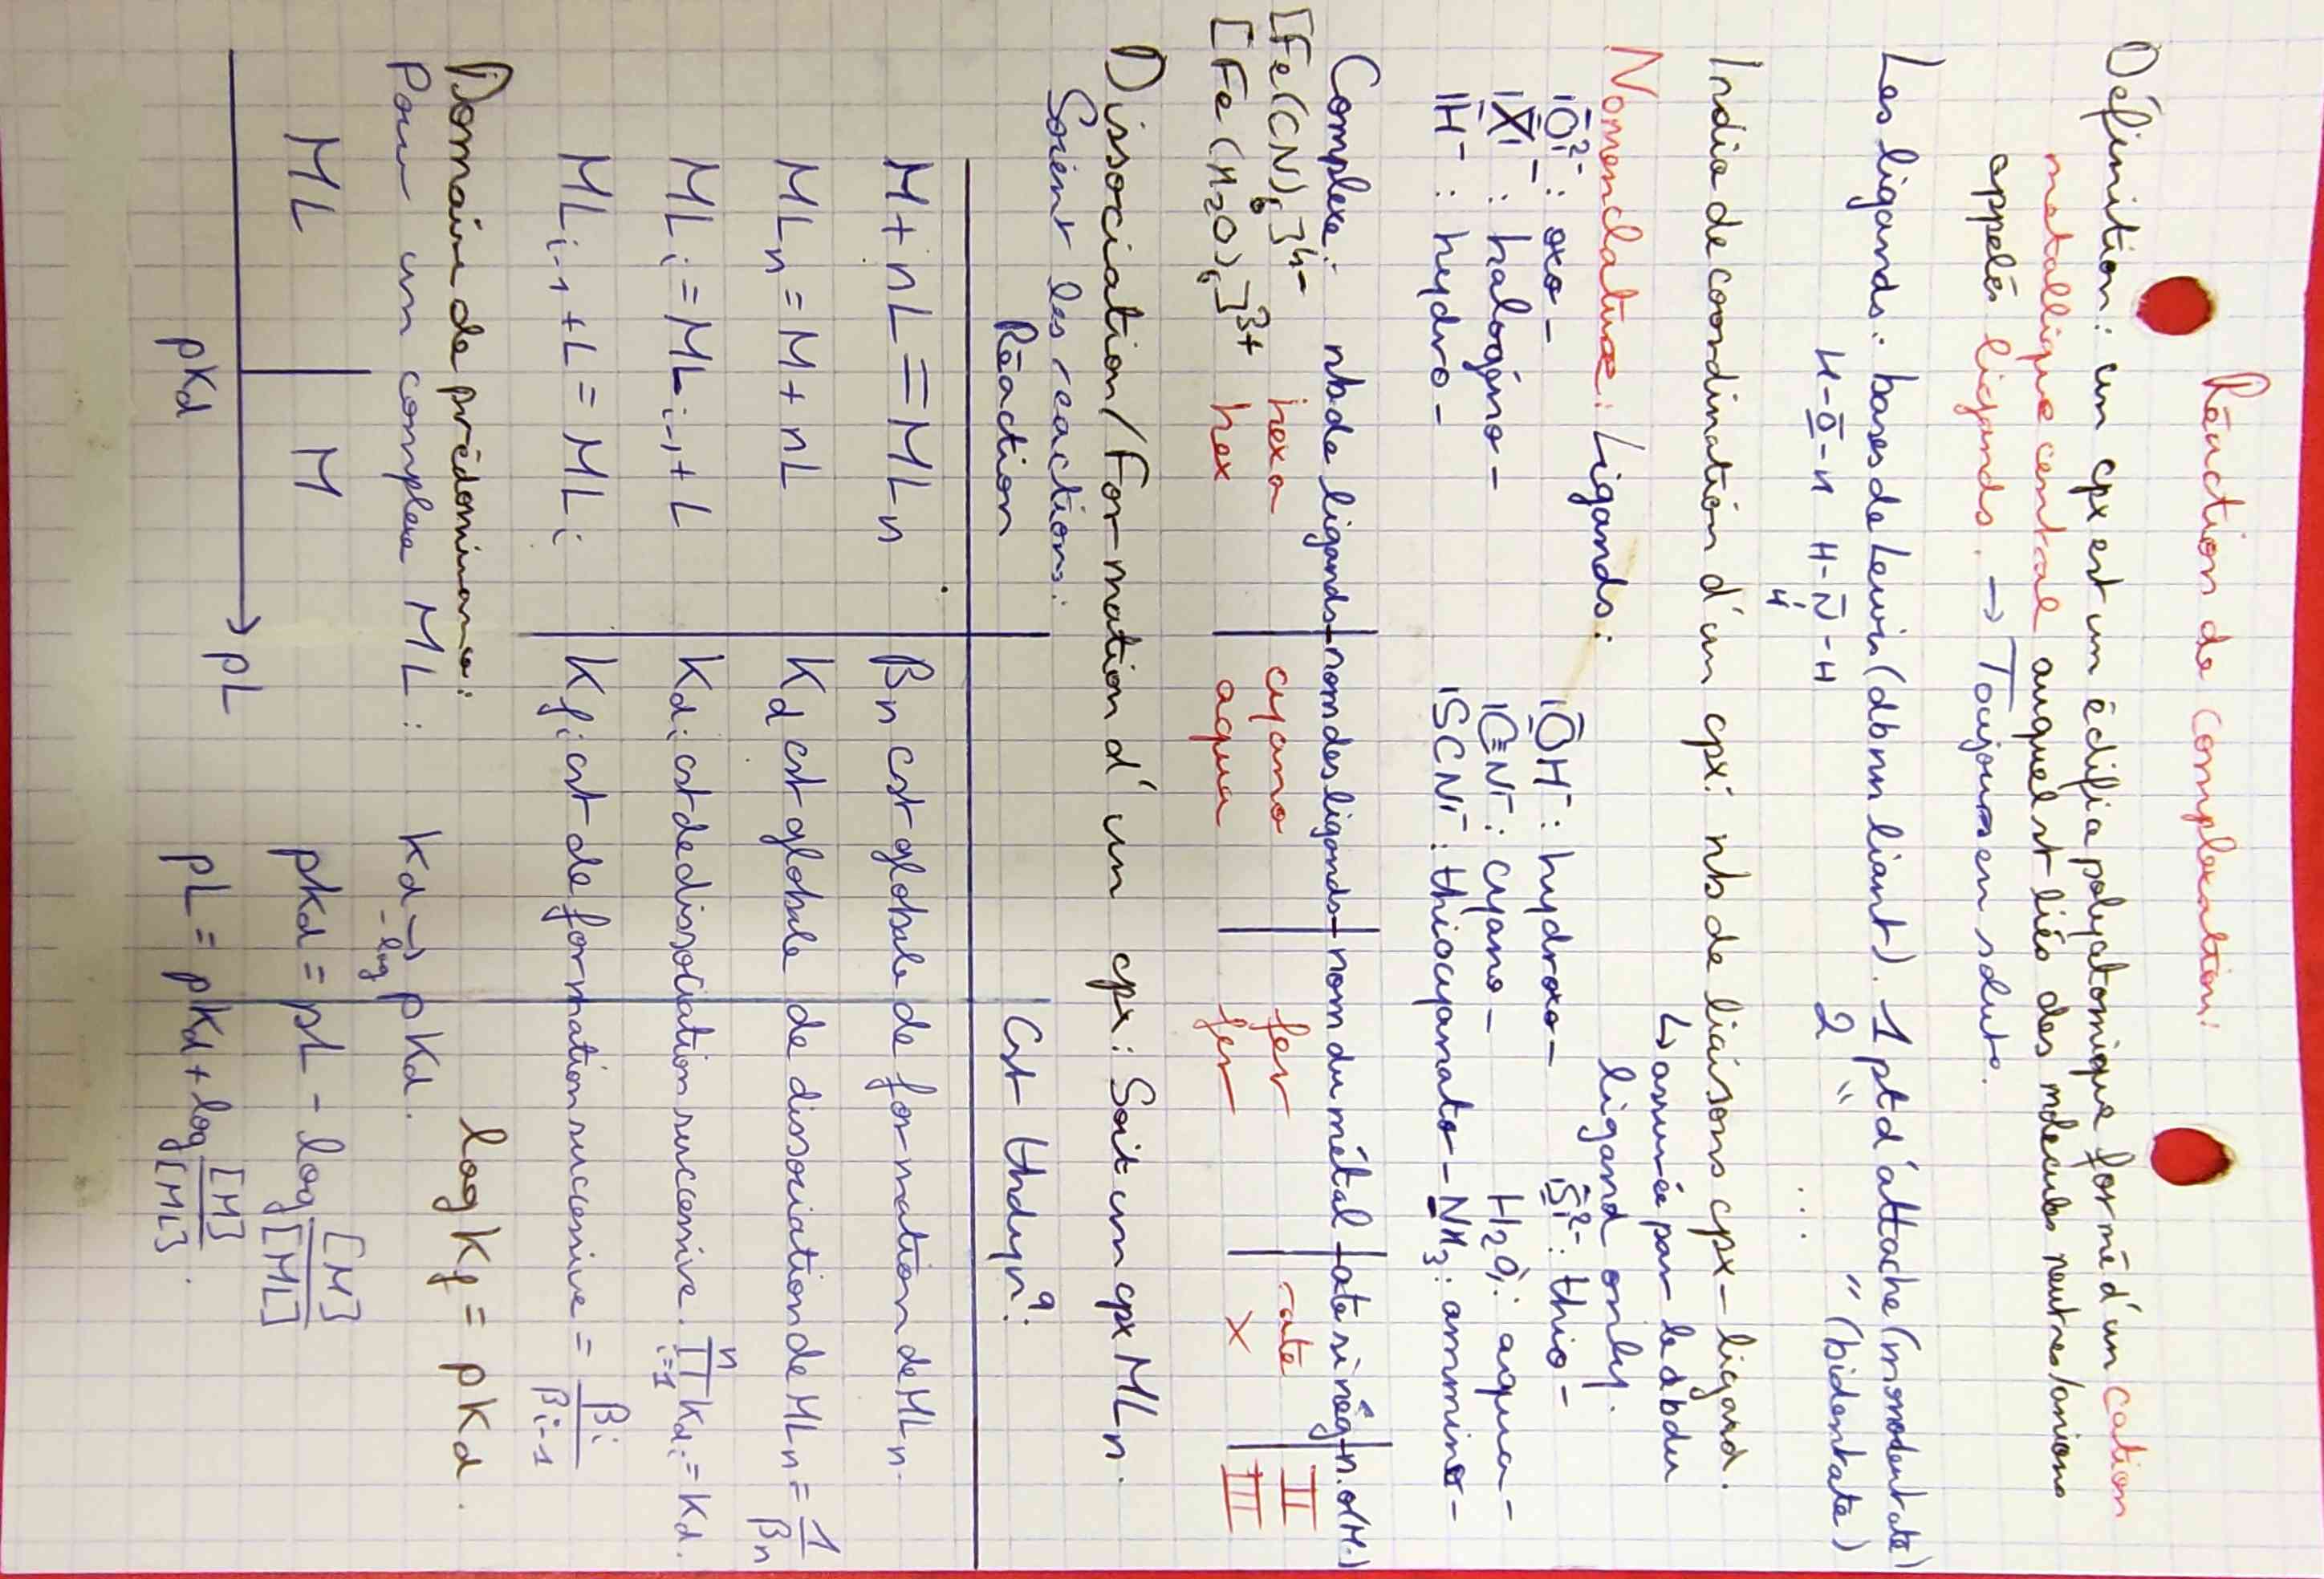 Réaction de Complexation:
Définition: un cpx est un édifice polyatomique formé d'un cation
métallique central auquel st liés des molécules neutres/anions
appelés ligands. → Toujours en soluto.
Les ligands: bases de Lewis (dbnn liant). 1 pt d'attache (monodentate)
H-O-H H-N-H 2 " " (bidentate)
H ...
Indice de coordination d'un cpx: nb de liaisons cpx-ligand.
↳ assurée par le dbdu
ligand only.
Nomenclature: Ligands:
|O|²⁻: oxo- |OH⁻: hydroxo- S²⁻: thio-
|X|⁻: halogéno- |C≡N|⁻: cyano- H₂O: aqua-
|H⁻: hydro- |SCN|⁻: thiocyanato- NH₃: ammino-
Complexe: nb de ligands-nom des ligands-nom du métal-ate si nég-n.o(M)
[Fe(CN)₆]⁴⁻ hexa cyano fer rate II
[Fe(H₂O)₆]³⁺ hex aqua fer X III
Dissociation/Formation d'un cpx: Soit un cpx MLn.
Soient les reactions:
Réaction Cst thdyn^q:
M + nL = MLn βn cst globale de formation de MLn.
MLn = M + nL Kd cst globale de dissociation de MLn = 1/βn
MLi = MLi-1 + L Kdi cst de dissociation successive. ∏ⁿᵢ₌₁ Kdi = Kd.
MLi-1 + L = MLi Kfi cst de formation successive = βi/βi-1
Domaine de prédominance: log Kf = pKd.
Pour un complexe ML: Kd → pKd.
-log
ML | M pKd = pL - log [M]/[ML]
pL
pKd pL = pKd + log [M]/[ML].